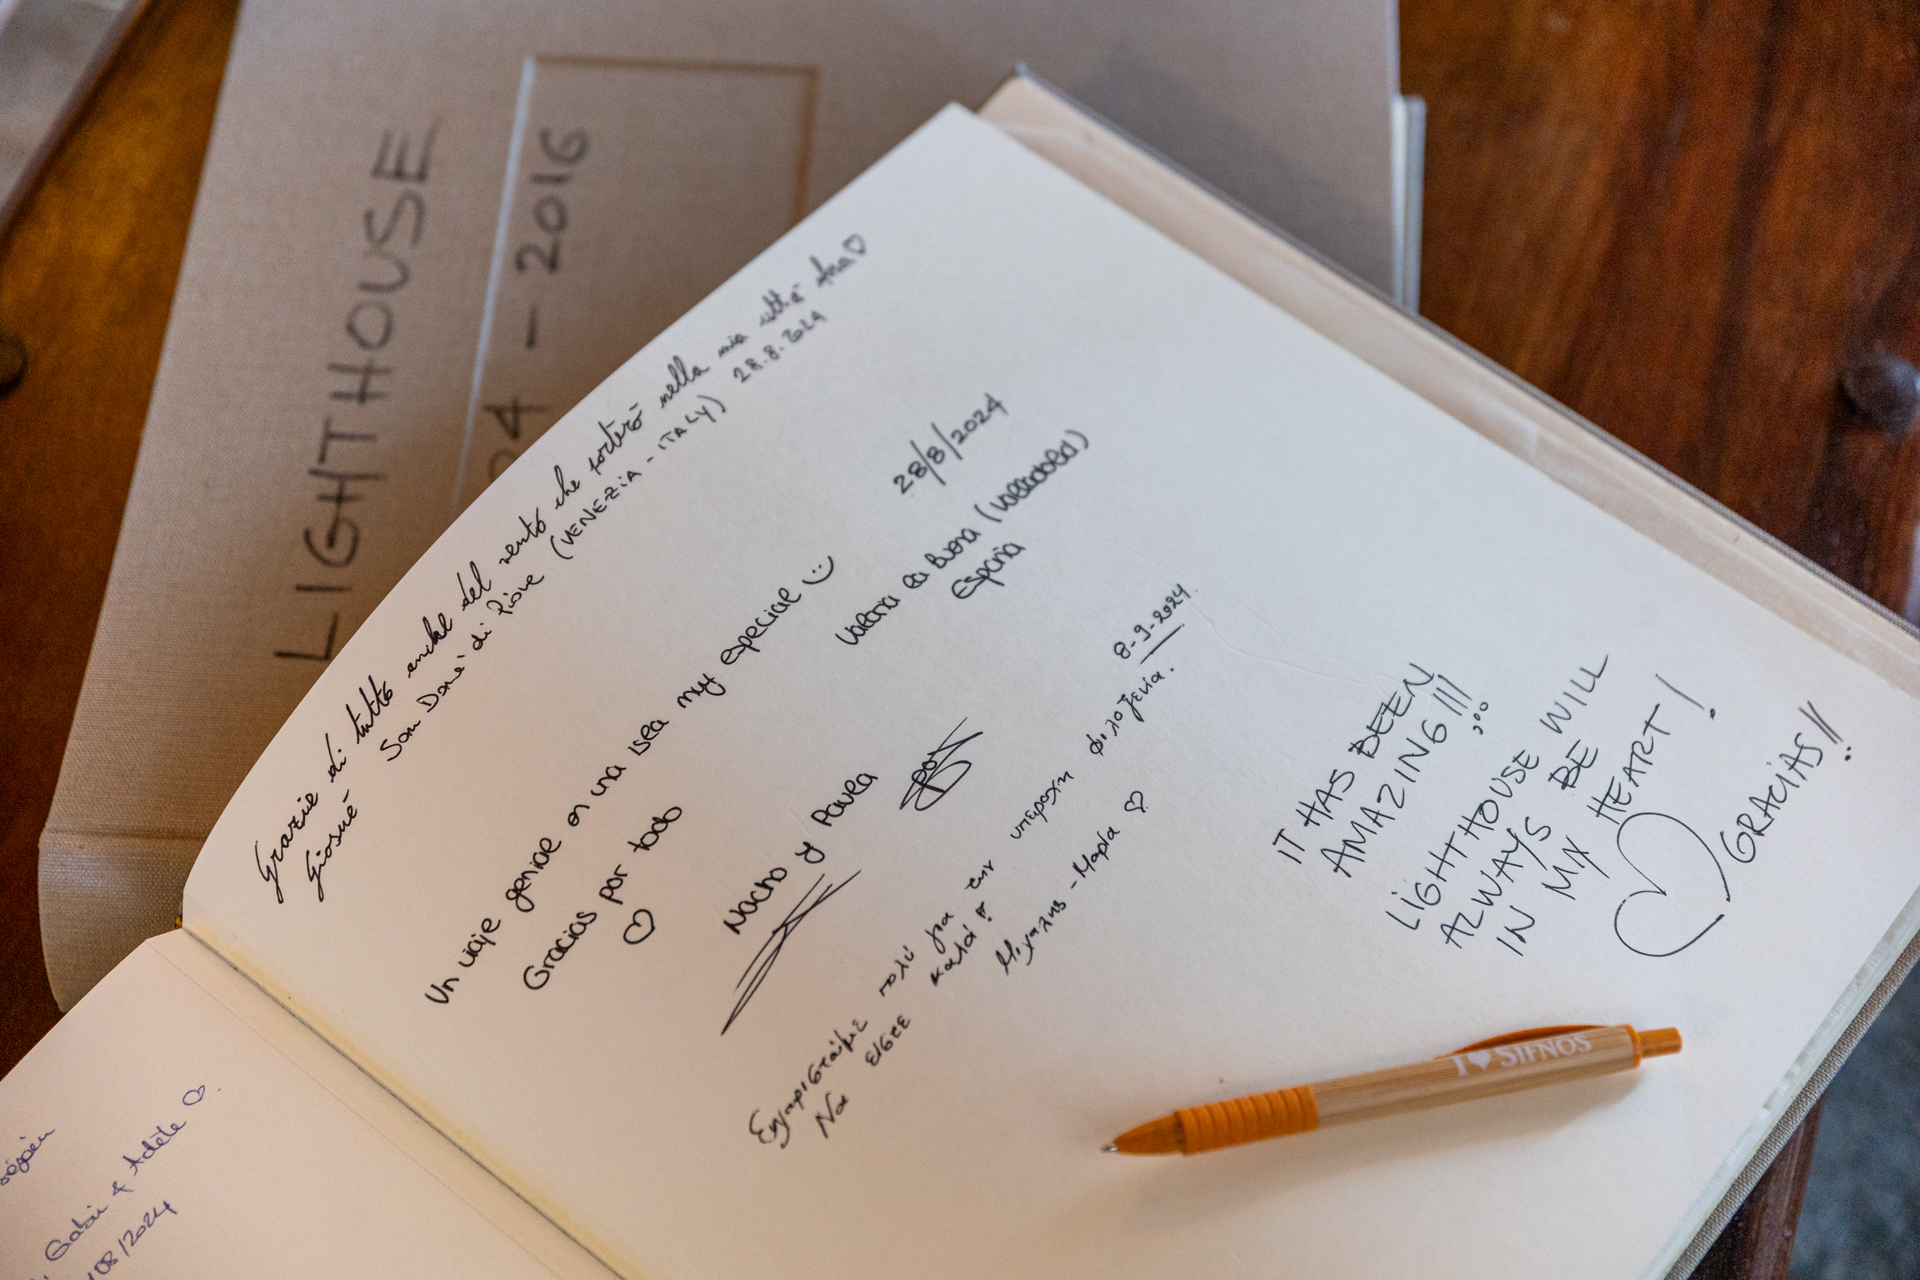 LIGHTHOUSE
04 - 2016
Grazie di tutto anche del vento che porterò nella mia città Ana ♡
Giosuè
San Donà di Piave (VENEZIA - ITALY) 28.8.2024
Un viaje genial en una isla muy especial :)
Gracias por todo
♡
28/8/2024
Valoria la Buena (Valladolid)
España
Nacho y Paula
Ευχαριστούμε πολύ για την υπέροχη φιλοξενία.
Να είστε καλά!!
8-9-2024
Μιχάλης - Μαρία ♡
IT HAS BEEN
AMAZING!!!
LIGHTHOUSE WILL
ALWAYS BE
IN MY HEART!
♡ GRACIAS!!
I ♥ SIFNOS
Gabin & Adèle ♡.
08/2024